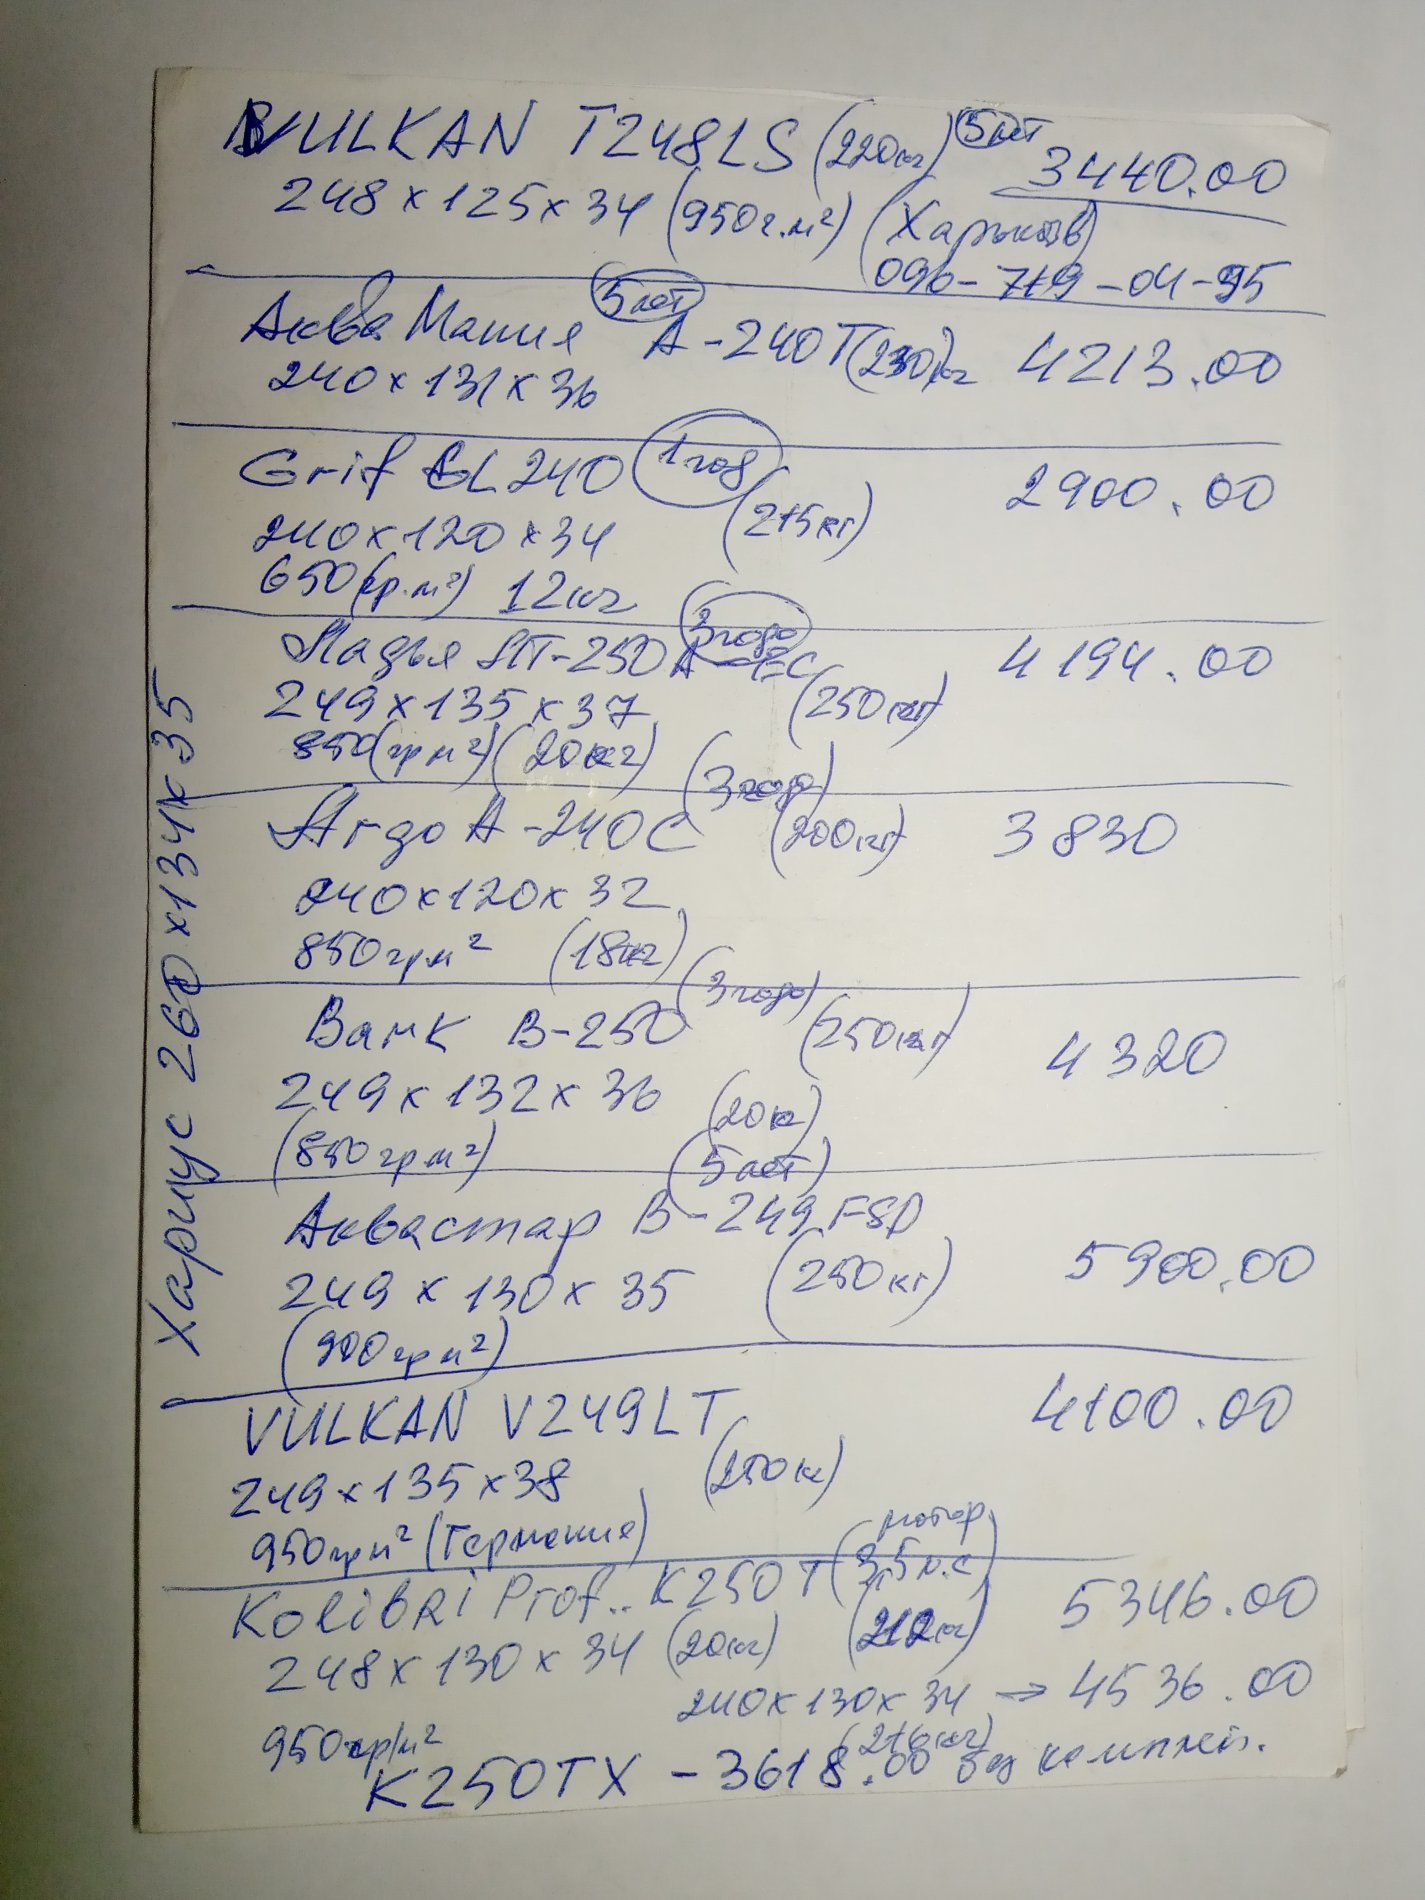 VULKAN T248LS (220кг) 5лет 3440.00
248 x 125 x 34 (950г.м²) (Харьков)
096-719-04-95
Аква Мания 5лет А-240Т (230)кг 4213.00
240 x 131 x 36
Grif GL240 1год 2900.00
240 x 120 x 34 (215кг)
650(гр.м²) 12кг
Ладья ЛТ-250А-ЕС 3года 4194.00
249 x 135 x 37 (250кг)
850(гр м²) (20кг)
Argo A-240C (3года) (200кг) 3830
240 x 120 x 32
850гр м² (18кг)
Вамк В-250 (3года) (250кг) 4320
249 x 132 x 36 (20кг)
(850гр м²) (5лет)
Аквастар В-249 FSD
249 x 130 x 35 (250кг) 5900.00
(900гр м²)
VULKAN V249LT 4100.00
249 x 135 x 38 (250кг)
950гр м² (Германия)
Kolibri Prof.. K250T (мотор 3,5 л.с) 5346.00
248 x 130 x 34 (20кг) (212кг)
240 x 130 x 34 → 4536.00
950гр/м² (216кг)
K250TX - 3618.00 без комплект.
Хариус 260 x 134 x 35